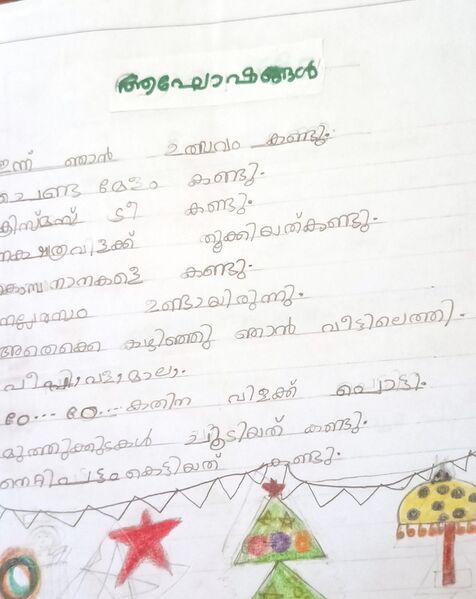 ആഘോഷങ്ങൾ
ഇന്ന് ഞാൻ ഉത്സവം കണ്ടു.
ചെണ്ട മേളം കണ്ടു.
ക്രിസ്മസ് ട്രീ കണ്ടു.
നക്ഷത്രവിളക്ക് തൂക്കിയത്കണ്ടു.
കൊമ്പനാനകളെ കണ്ടു.
നല്ലരസം ഉണ്ടായിരുന്നു.
അതൊക്കെ കഴിഞ്ഞു ഞാൻ വീട്ടിലെത്തി.
പീപ്പി, വള, മാല,
ഠേ... ഠേ... കതിന വിളക്ക് പൊട്ടി.
മുത്തുക്കുടകൾ ചൂടിയത് കണ്ടു.
നെറ്റിപട്ടം കെട്ടിയത് കണ്ടു.